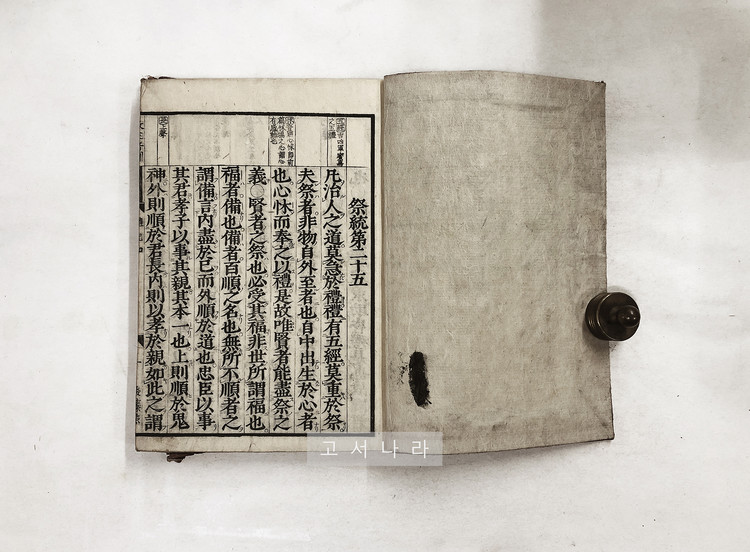 祭統第二十五
凡治人之道莫急於禮禮有五經莫重於祭
夫祭者非物自外至者也自中出生於心者
也心怵而奉之以禮是故唯賢者能盡祭之
義○賢者之祭也必受其福非世所謂福也
福者備也備者百順之名也無所不順者之
謂備言內盡於己而外順於道也忠臣以事
其君孝子以事其親其本一也上則順於鬼
神外則順於君長內則以孝於親如此之謂
고서나라